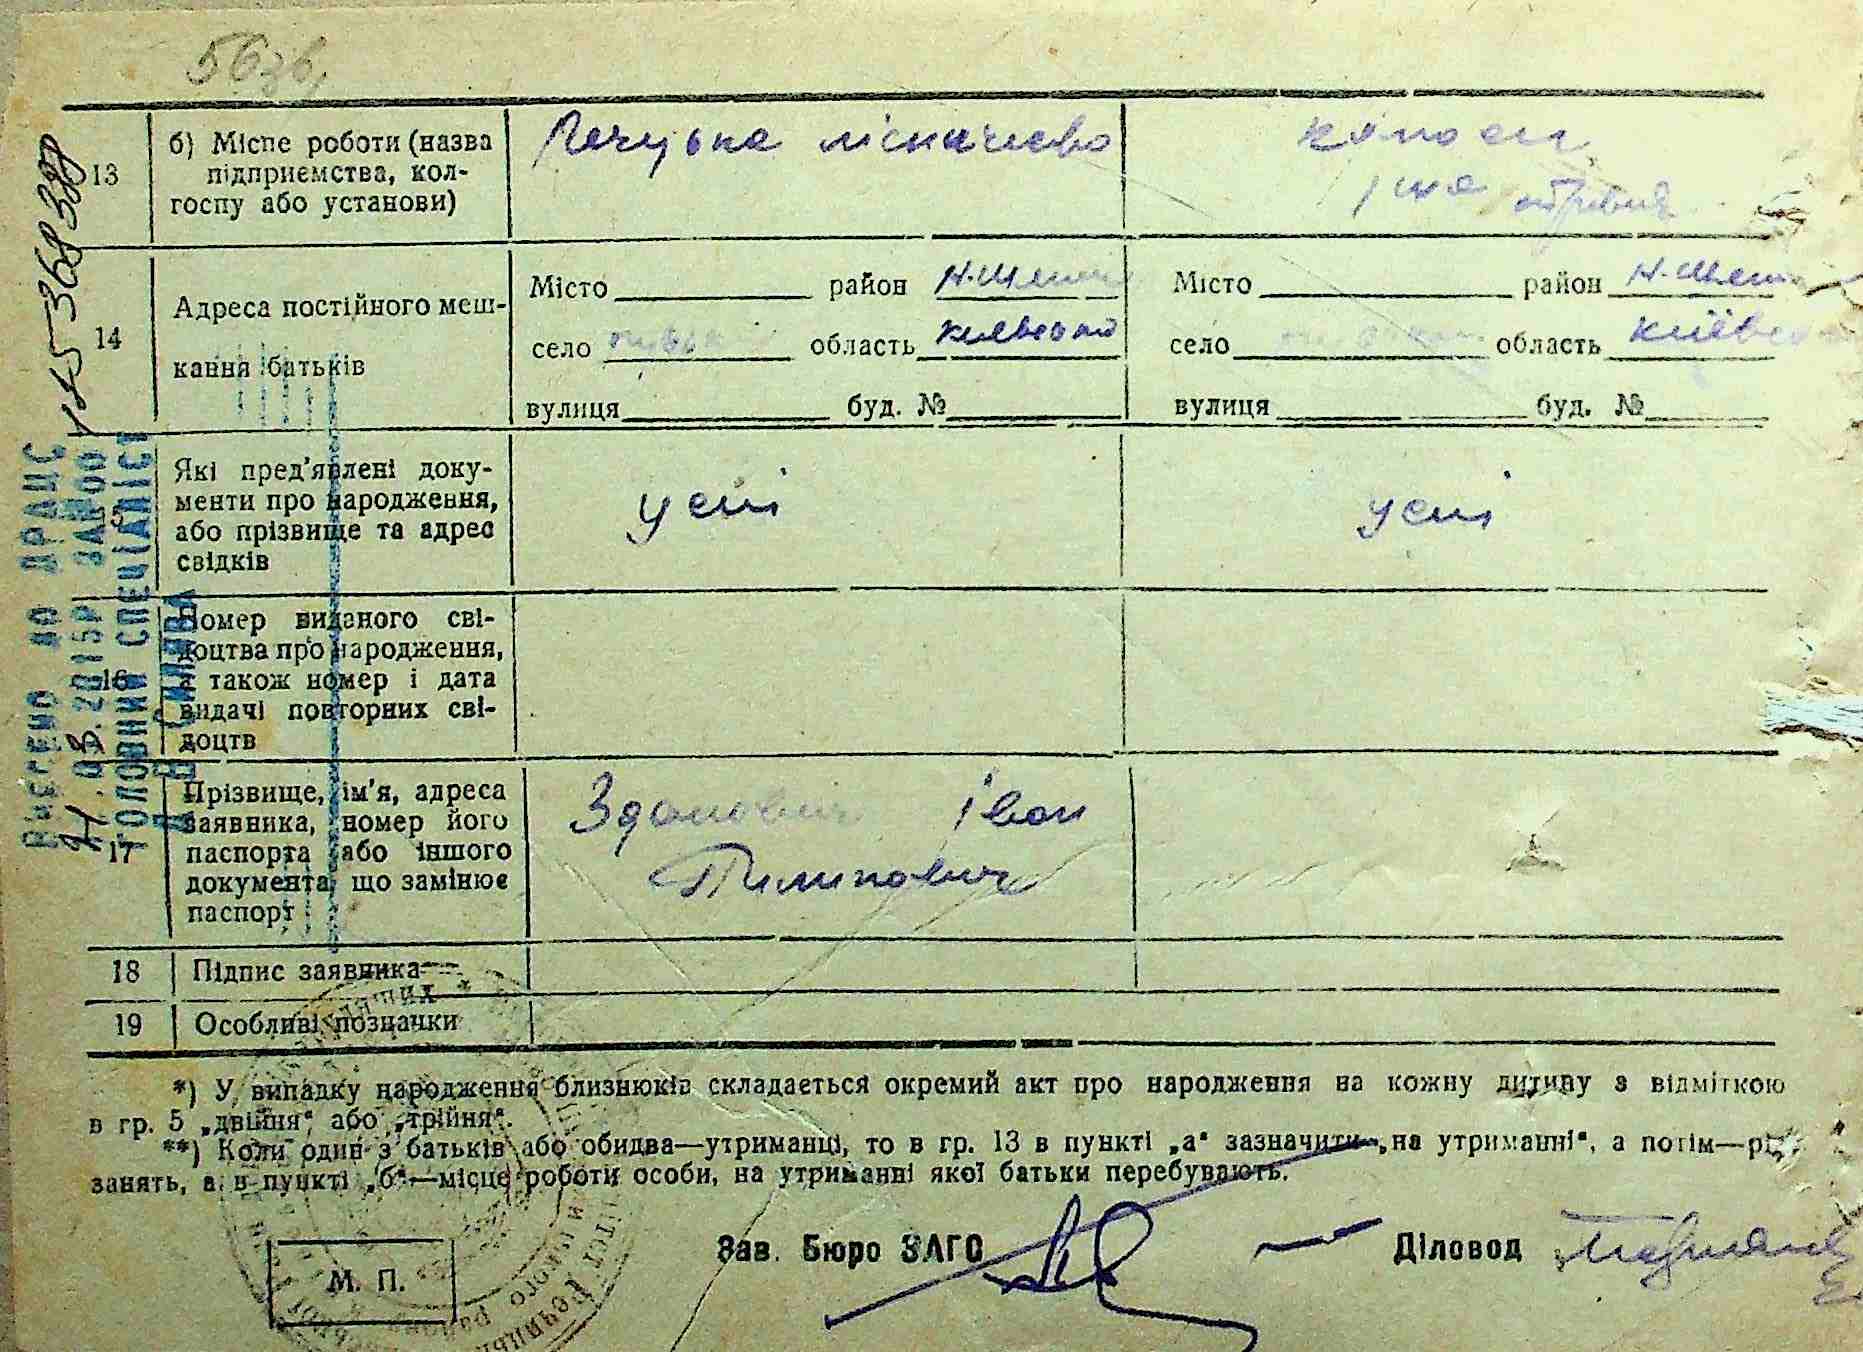 563в,
13
б) Місце роботи (назва
підприємства, кол-
госпу або установи)
лісництво
14
Адреса постійного меш-
кання батьків
Місто район Н.-Шепел
село область Київської
вулиця буд. №
Місто район Н.-Шепел
село область Київської
вулиця буд. №
Які пред'явлені доку-
менти про народження,
або прізвище та адрес
свідків
усні
усні
16
Номер виданого сві-
доцтва про народження,
а також номер і дата
видачі повторних сві-
доцтв
17
Прізвище, ім'я, адреса
заявника, номер його
паспорта або іншого
документа, що замінює
паспорт
Зданович Іван
Пилипович
18 Підпис заявника
19 Особливі позначки
*) У випадку народження близнюків складається окремий акт про народження на кожну дитину з відміткою
в гр. 5 „двійня“ або „трійня“.
**) Коли один з батьків або обидва—утриманці, то в гр. 13 в пункті „а“ зазначити „на утриманні“, а потім—рід
занять, а в пункті „б“—місце роботи особи, на утриманні якої батьки перебувають.
М. П.
Зав. Бюро ЗАГС
Діловод
ВНЕСЕНО ДО ДРАЦС
.03.2015Р ЗА №00 125368388
ГОЛОВНИЙ СПЕЦІАЛІСТ